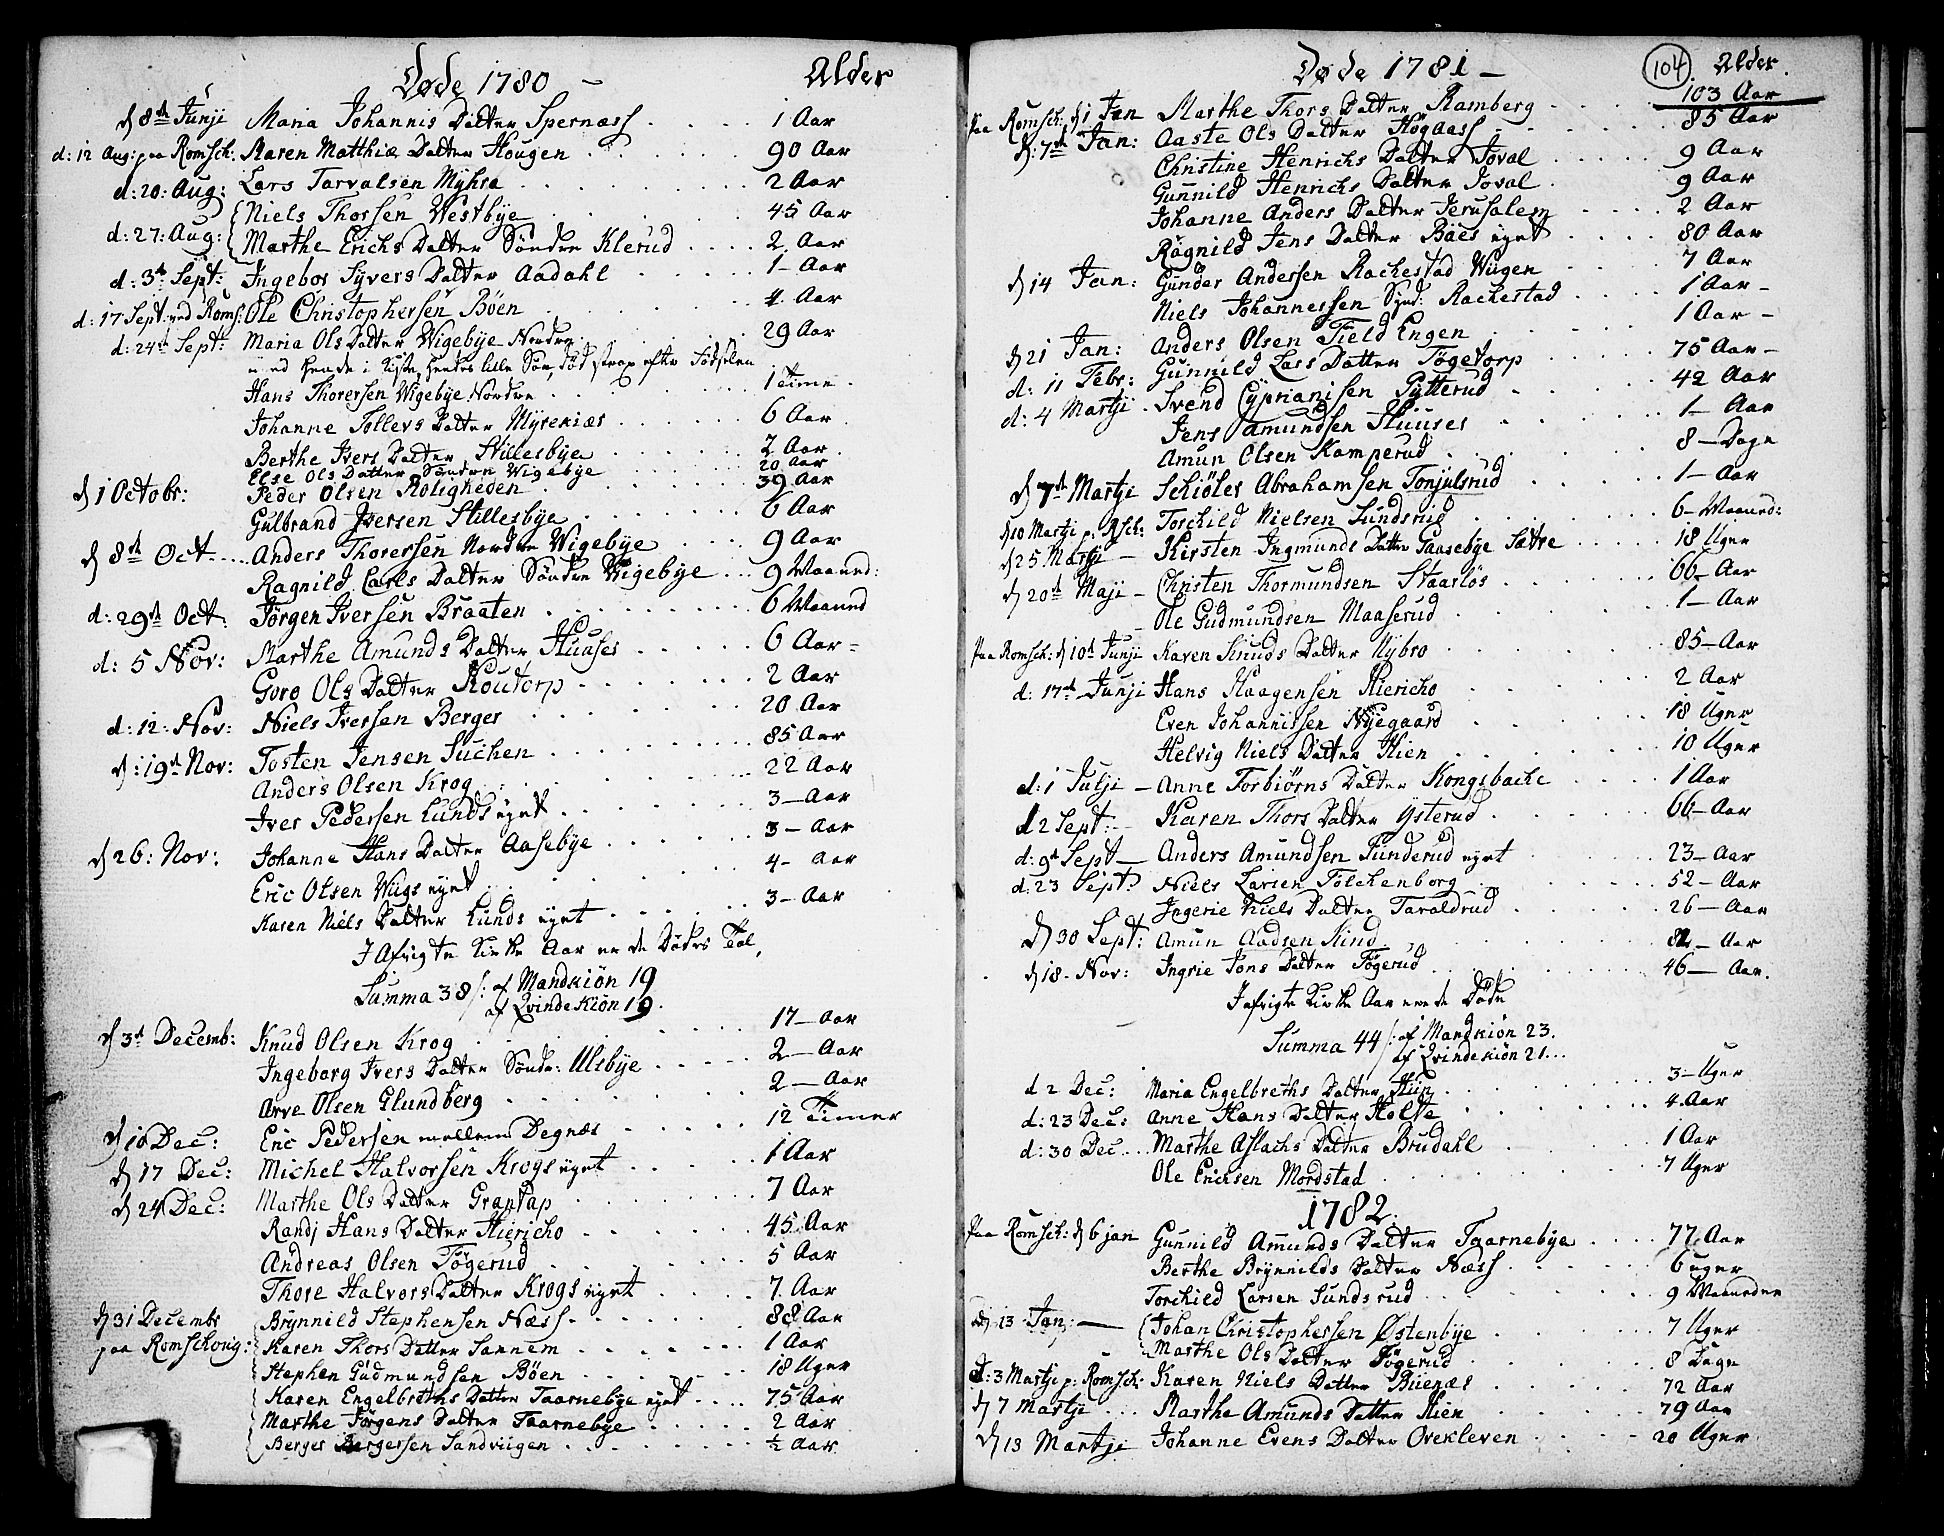 Døde 1780 - Alder
d 8de Junji Maria Johannis Datter Spernæss 1 Aar
d: 12 Aug: paa Romsch: Karen Matthiæ Datter Hougen 90 Aar
d: 20: Aug: Lars Tarvalsen Myhra 2 Aar
Niels Thorsen Westbye 45 Aar
d: 27: Aug: Marthe Erichs Datter Søndre Klerud 2 Aar
d: 3de Sept: Ingebor Syvers Datter Aadahl 1 - Aar
d: 17 Sept: ved Roms: Ole Christophersen Böen 4 Aar
d: 24de Sept: Maria Ols Datter Wigebye Nordre 29 Aar
hende i Kiste, hendes lille Søn, död strax efter Födselen
Hans Thorersen Wigebye Nordre 1 Time
Johanne Tollevs Datter Myrekiær 6 Aar
Berthe Ivers Datter Stillesbye 2 Aar
Else Ols Datter Søndre Wigebye 20 Aar
d 1 Octobr: Peder Olsen Roligheden 39 Aar
Gulbrand Iversen Stillesbye 6 Aar
d 8de Oct Anders Thorersen Nordre Wigebye 9 Aar
Ragnild Carls Datter Søndre Wigebye 9 Maaned:
d: 29de Oct: Jørgen Iversen Braaten 6 Maaned
d: 5 Nov: Marthe Amunds Datter Huuses 6 Aar
Goro Ols Datter Koutorp 2 Aar
d: 12: Nov: Niels Iversen Berger 20 Aar
d: 19de Nov: Tosten Jensen Suchen 85 Aar
Anders Olsen Krog 22 Aar
Iver Pedersen Lunds eyet 3 - Aar
d 26: Nov: Johanne Hans Datter Aasebye 3 - Aar
Eric Olsen Wiigs eyet 4 - Aar
Karen Niels Datter Lunds eyet 3 - Aar
I Afvigte Kirke Aar er de Dödes Tal,
Summa 38 /: af Mandkiön 19
af Qvindekiön 19.
d 3de Decemb: Knud Olsen Krog 17 - Aar
Ingeborg Ivers Datter Søndr: Ulsbye 2 - Aar
Arve Olsen Glundberg 2 - Aar
d 10 Dec: Eric Pedersen mellem Degnæs 12 Timer
d 17 Dec: Michel Halvorsen Krogs eyet 1 Aar
d 24 Dec: Marthe Ols Datter Grantap 7 Aar
Randj Hans Datter Hiericho 45 Aar
Andreas Olsen Tögerud 5 Aar
Thore Halvors Datter Krogs eyet 7. Aar
d 31 Decembr Brynnild Stephensen Næss 88 Aar
paa Romschoug: Karen Thors Datter Sannem 1 Aar
Stephen Gudmundsen Böen 18 Uger
Karen Engelbreths Datter Taarnebye eyet 75 Aar
Marthe Jørgens Datter Taarnebye 2 Aar
Berger Bergersen Sandviigen ½ Aar
Døde 1781 - 104 Alder
paa Romsch: d 1 Jan Marthe Thors Datter Ramberg 103 Aar
d: 7de Jan: Aaste Ols Datter Högaass 85 Aar
Christine Henrichs Datter Joval 9 Aar
Gunnild Henrichs Datter Joval 9 Aar
Johanne Anders Datter Jerusalem 2 Aar
Ragnild Jens Datter Böes eyet 80 Aar
d 14 Jan: Gunder Andersen Rachestad Wiigen 7 Aar
Niels Johannessen Synd: Rachestad 1 Aar -
d 21 Jan: Anders Olsen Field Engen 1 Aar -
d: 11 Febr: Gunnild Lars Datter Tögetorp 75 Aar -
d: 4 Martji Svend Cyprianisen Pytterud 42 Aar
Jens Amundsen Huuser 1 - Aar
Amun Olsen Kamperud 8 - Dage
d 7de Martji Schiöler Abrahamsen Tonjulsrud 1 - Aar
d 10 Martji p: Rsch: Torchild Nielsen Sundsrud 6 - Maaned:
d 25 Martji - Kirsten Ingmunds Datter Gaasebye Sætre 18 Uger
d 20de Maji - Christen Thormundsen Staarlös 66 - Aar
Ole Gudmundsen Maaserud 1 - Aar
Paa Romsch: d 10de Junji Karen Knuds Datter Nybro 85 - Aar
d: 17de Junji Hans Haagensen Hiericho 2 Aar
Even Johannissen Nyegaard 18 Uger
Helvig Niels Datter Hien 10 Uger
d: 1 Julji - Anne Torbiörns Datter Kongsbache 1 Aar
d 2 Sept: - Karen Thors Datter Ysterud 66 - Aar
d: 9de Sept - Anders Amundsen Funderud eyet 23 - Aar
d: 23 Sept: Niels Larsen Fölchenborg 52 - Aar
Ingerie Niels Datter Taraldrud 26 - Aar
d 30 Sept: Amun Aadsen Kind 82 - Aar
d 18 - Nov: Ingrie Jons Datter Tögerud 46 - Aar.
I afvigte Kirke Aar ere de Döde
Summa 44 /: af Mandkiön 23.
af Qvindekiön 21...
d 2 Dec: Maria Engelbreths Datter Hiin 3 - Uger
d: 23 Dec: Anne Hans Datter Holte 4 Aar
d: 30 Dec Marthe Aslachs Datter Brudahl 1 Aar
Ole Erichsen Mordstad 7 Uger
1782.
Paa Romsch: d 6 jan Gunnild Amunds Datter Taarnebye 77 Aar
Berthe Brynnilds Datter Næss 6 uger
Torchild Larsen Sundsrud 9 Maaneder
d 13 Jan: - Johan Christophersen Østenbye 7 Uger
Marthe Ols Datter Tögerud 8 Dage
d: 3 Martji p: Romsch: Karen Niels Datter Büenæs 72 Aar
d 7 Martji Marthe Amunds Datter Hien 79 Aar
d 13 Martji Johanne Evens Datter Ovekleven 20 Uger